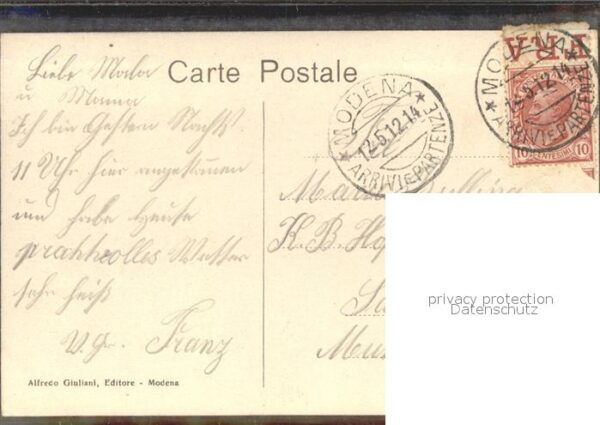 Carte Postale
Liebe Mala
u Mama
Ich bin Gestern Nachts
11 Uhr hier angekommen
und habe Heute
prachtvolles Wetter
sehr heiß
V. Gr. Franz
Alfredo Giuliani, Editore - Modena
MODENA
12-5.12-14
ARRIVI E PARTENZE
MODENA
12-5.12-14
ARRIVI E PARTENZE
10 CENTESIMI 10
K. B.
privacy protection
Datenschutz